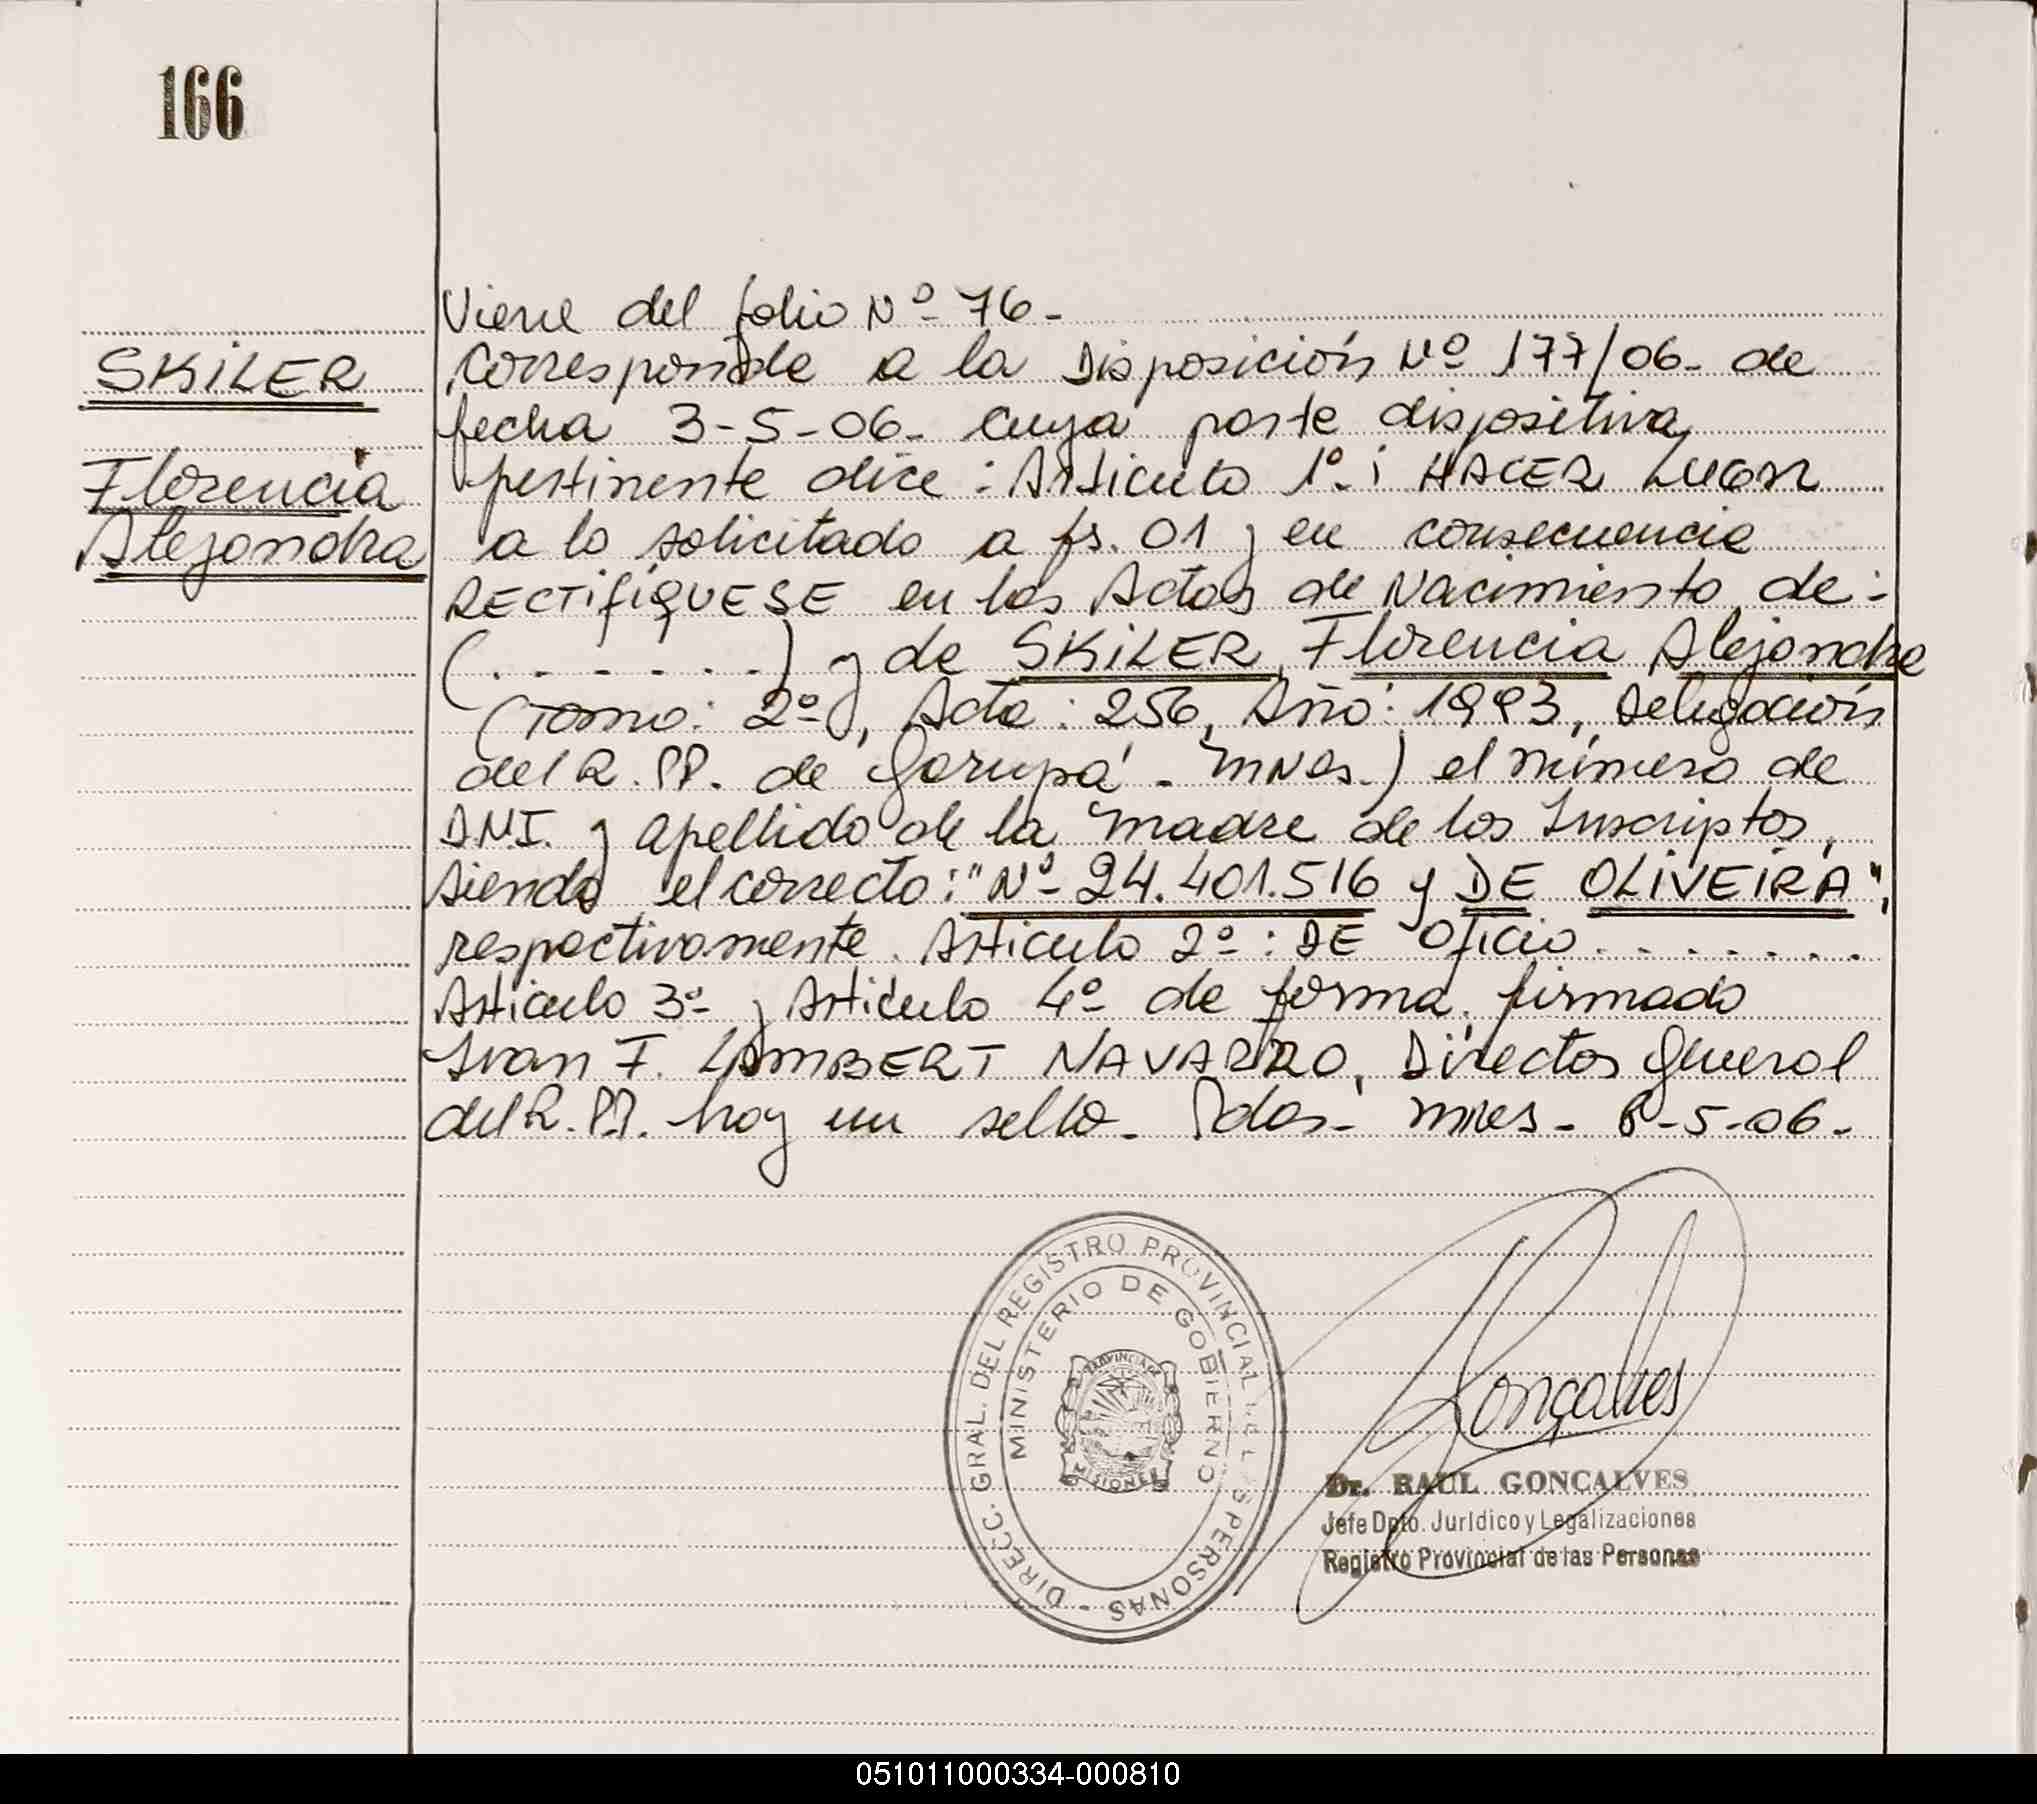 166
Viene del folio Nº 76-
SKiLER
Corresponde a la Disposición Nº 177/06- de
fecha 3-5-06- cuya parte dispositiva
Florencia
pertinente dice: Artículo 1º: HACER LUGAR
Alejandra
a lo solicitado a fs. 01 y en consecuencia
RECTIFÍQUESE en las Actas de Nacimiento de:
(. . . . . . .) y de SKiLER, Florencia Alejandra
(Tomo: 2º, Acta: 256, Año: 1993, Delegación
del R.PP. de Garupá - Mnes.) el número de
D.N.I. y apellido de la madre de los Inscriptos,
siendo el correcto: "Nº 24.401.516 y DE OLIVEIRA",
respectivamente. Artículo 2º: DE Oficio . . . . . . .
Artículo 3º y Artículo 4º de forma. firmado
Ivan F. LAMBERT NAVARRO, Director General
del R.PP. hay un sello- Pdas- Mnes- 8-5-06-
DIRECC. GRAL. DEL REGISTRO PROVINCIAL DE LAS PERSONAS -
MINISTERIO DE GOBIERNO
PROVINCIA DE
MISIONES
Gonçalves
Dr. RAUL GONCALVES
Jefe Dpto. Jurídico y Legalizaciones
Registro Provincial de las Personas
051011000334-000810